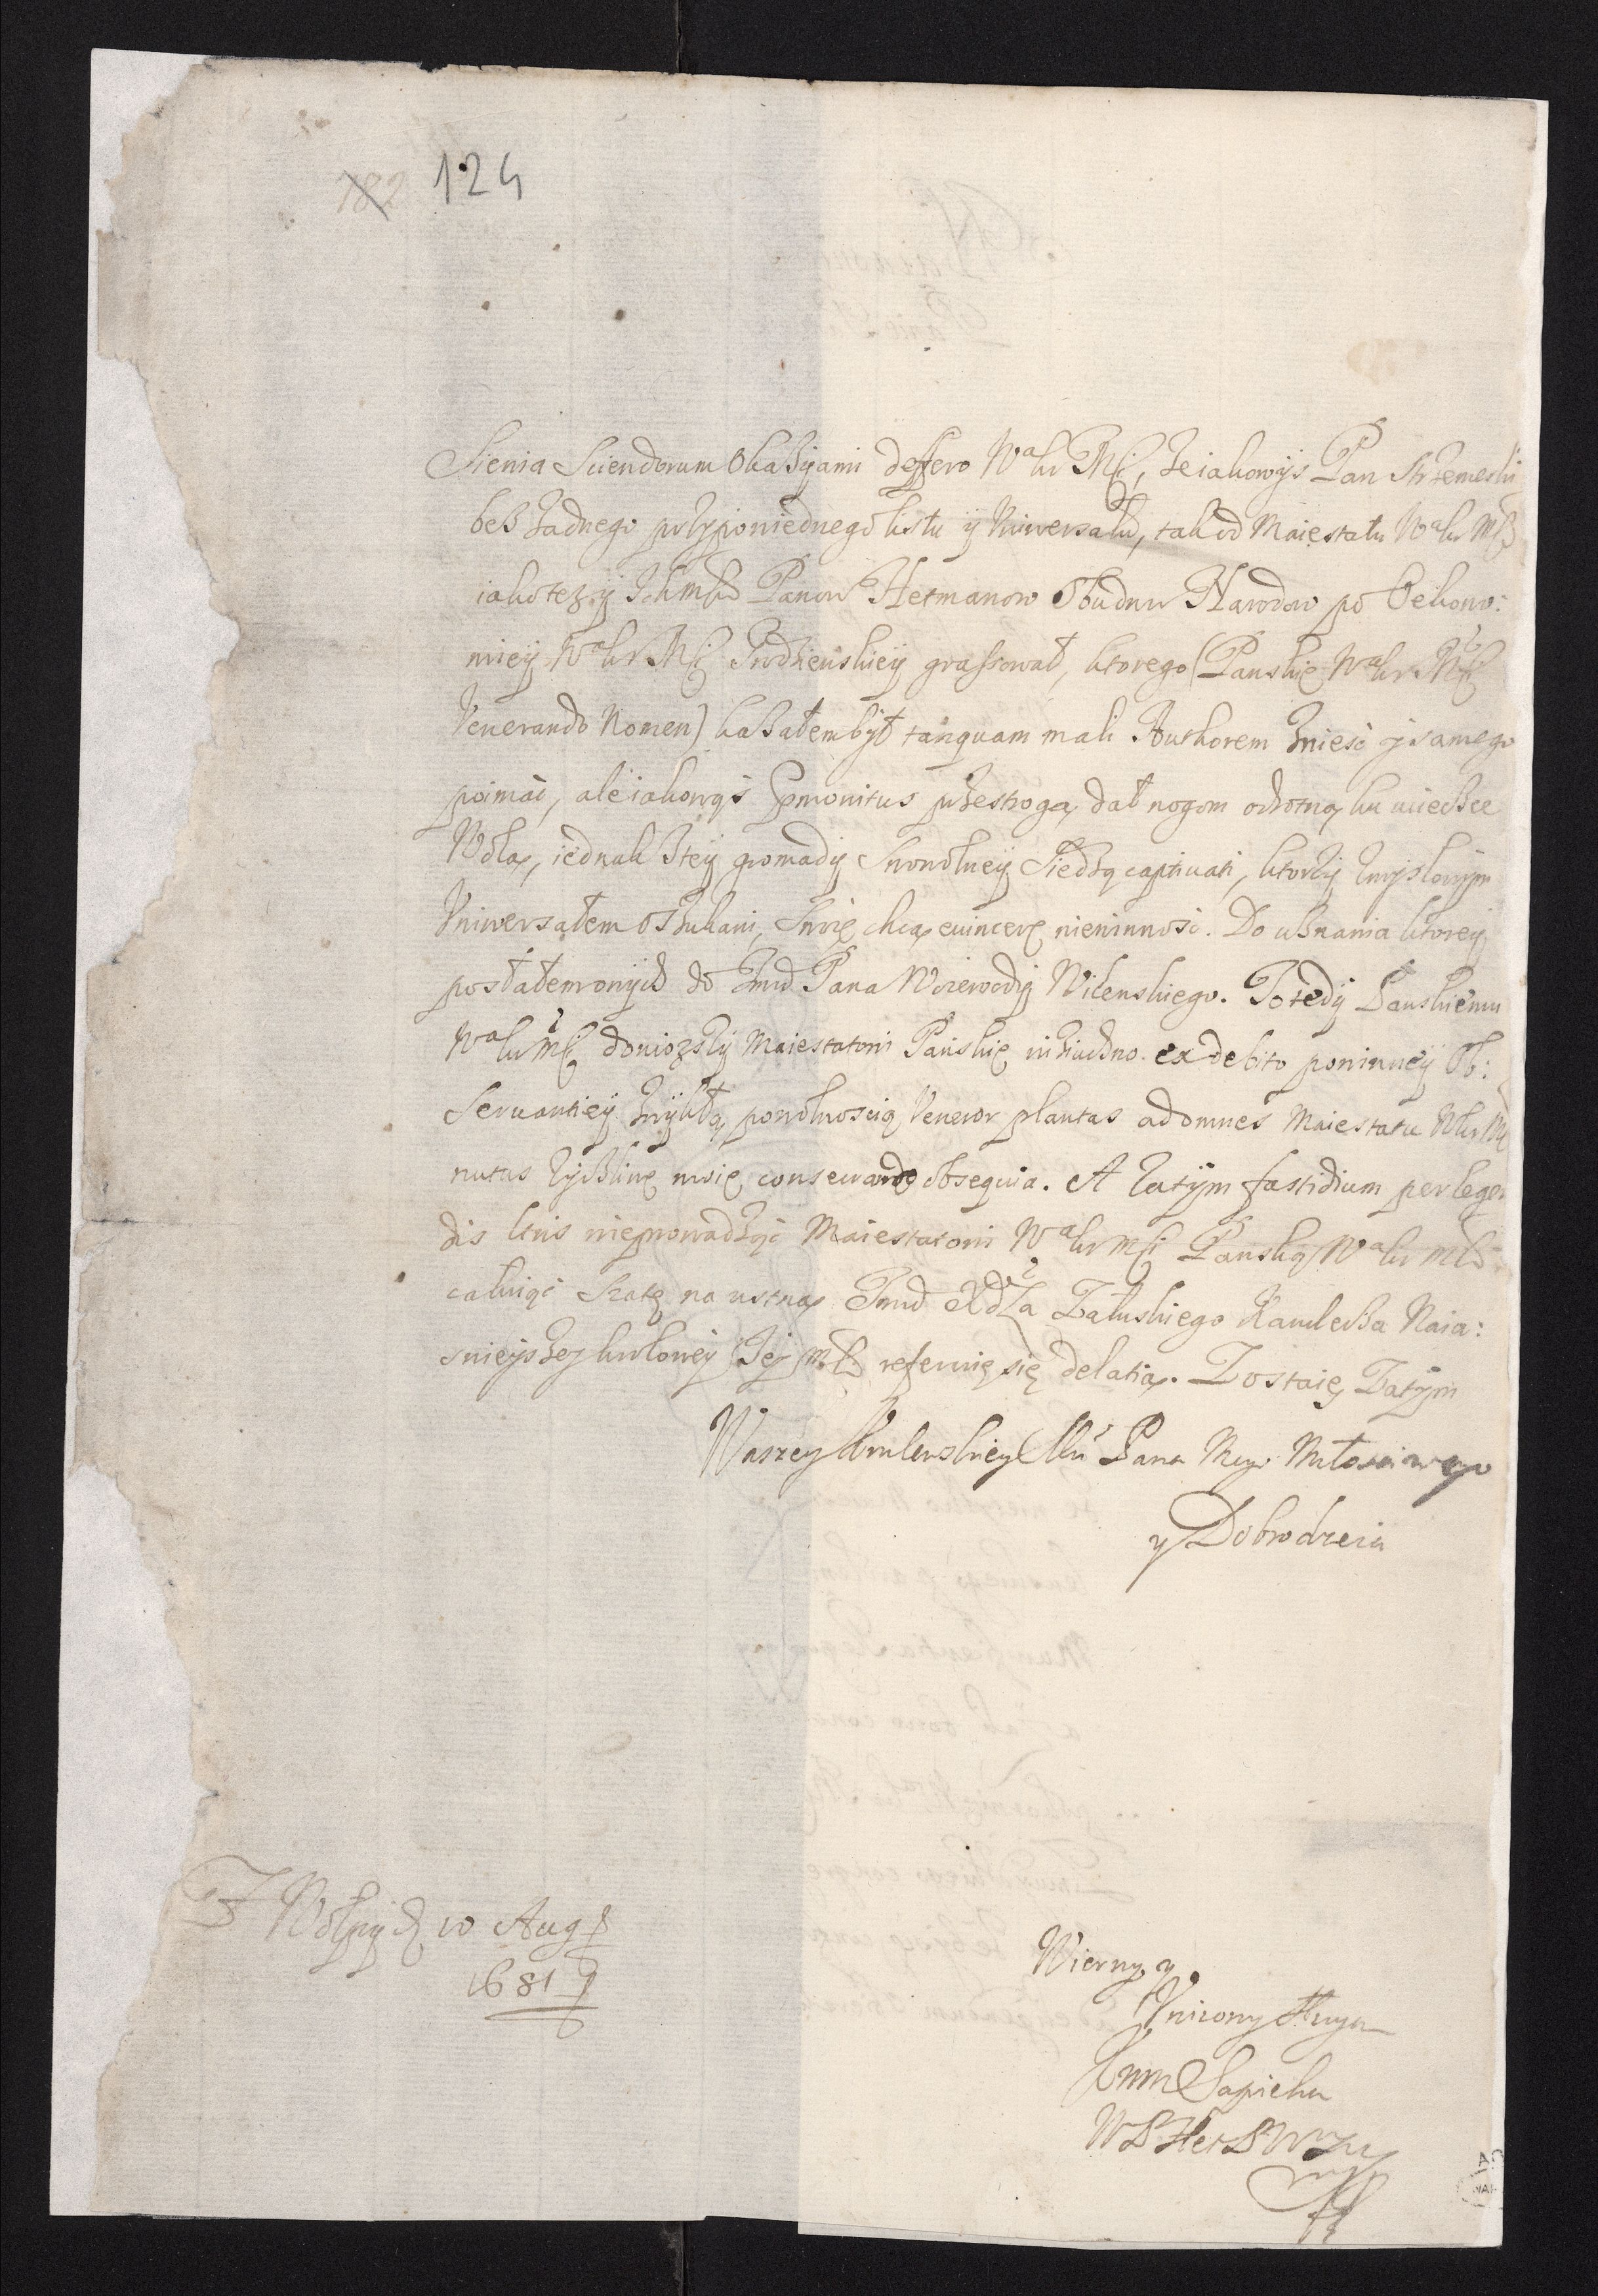 782 124
Sienia Sciendorum Okazyami deffero W a kr Msi, ze iakowys Pan Strzemeski
bez zadnego przyponiednego listu y Vniwersału, tak od Maiestatu W a kr Msci
iako tez y Ichmsciow Panow Hetmanow Obudwu Narodow po Oekono:
miey W a kr Msi Grodzienskiey grassował, ktorego (Panskie W a kr Msci
Venerando Nomen) kazałem był tanquam mali Authorem znieść y samego
poimać, ale iakowąś praemonitus przestrogą, dał nogom ochotną ku ucieczce
Wolą, iednak z tey gromady swowolney siedzą captivati, ktorzy zmyslonym
Vniwersałem oszukani, swoię chcą evincere niewinnosc. Do uznania ktorey
posłałem onych do Jmci Pana Woiewody Wilenskiego. To tedy Panskiemu
W a kr Msi doniozszy Maiestatowi Panskie ex debito powinney Ob:
servantiey zwykłą powolnoscią Veneror plantas ad omnes Maiestatu W kr Msci
nutus zyczliwe moie conservando obsequia. A zatym fastidium perlegen
dis ltris nieprowadząc Maiestatowi W a kr Msi Panską W a kr Msci
całuiąc szatę na ustną Jmci Xdza Załuskiego Kanclerza Naia:
snieyszey krolowey Jey Mci referuię się delatią. Zostaię Zatym
Waszey Krolewskiey Mci Pana Mego Miłosciwego
y Dobrodzieia
Z Wołpy d 10 Aug
1681
Wierny y
Vnizony sługa
Sapieha
W Het W X L